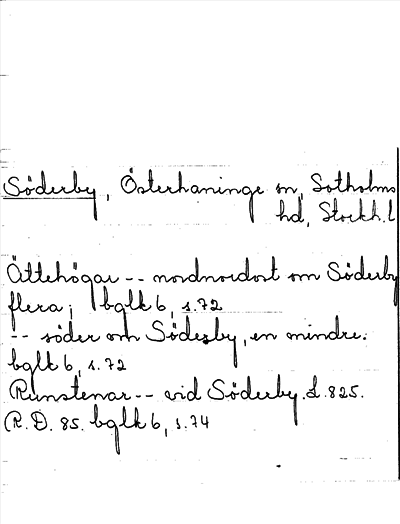 Söderby, Österhaninge sn, Sotholms
hd, Stockh.l
Ättehögar -- nordnordost om Söderby
flera; bglk 6, s.72
-- söder om Söderby, en mindre.
bglk 6, s.72
Runstenar -- vid Söderby. L. 825.
(R. D. 85. bglk 6, s.74